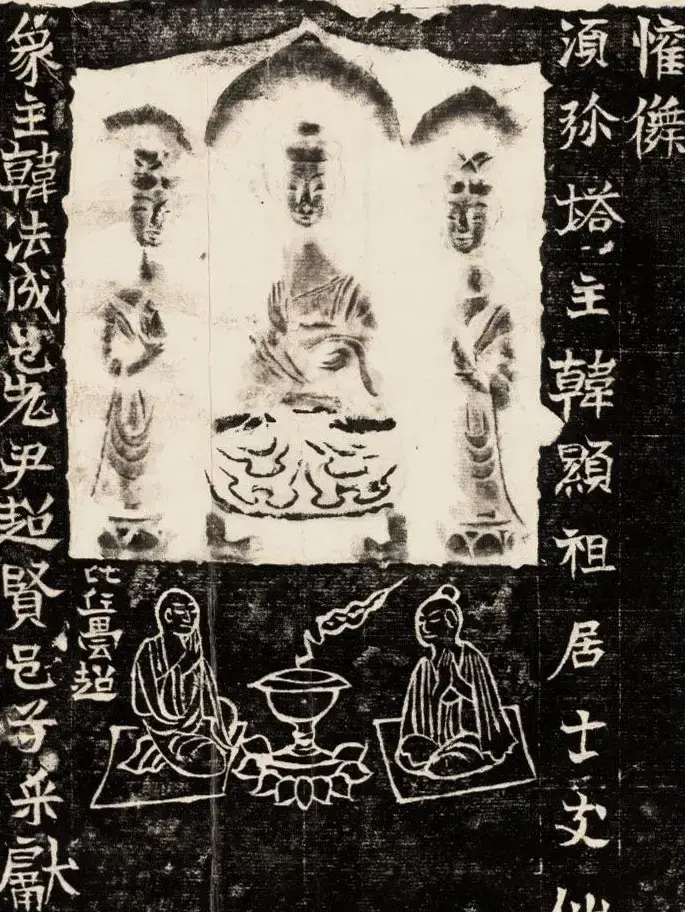 傑
湏弥塔主韓顯祖居士
比丘曇超
象主韓法成邑老尹超賢邑子采獻